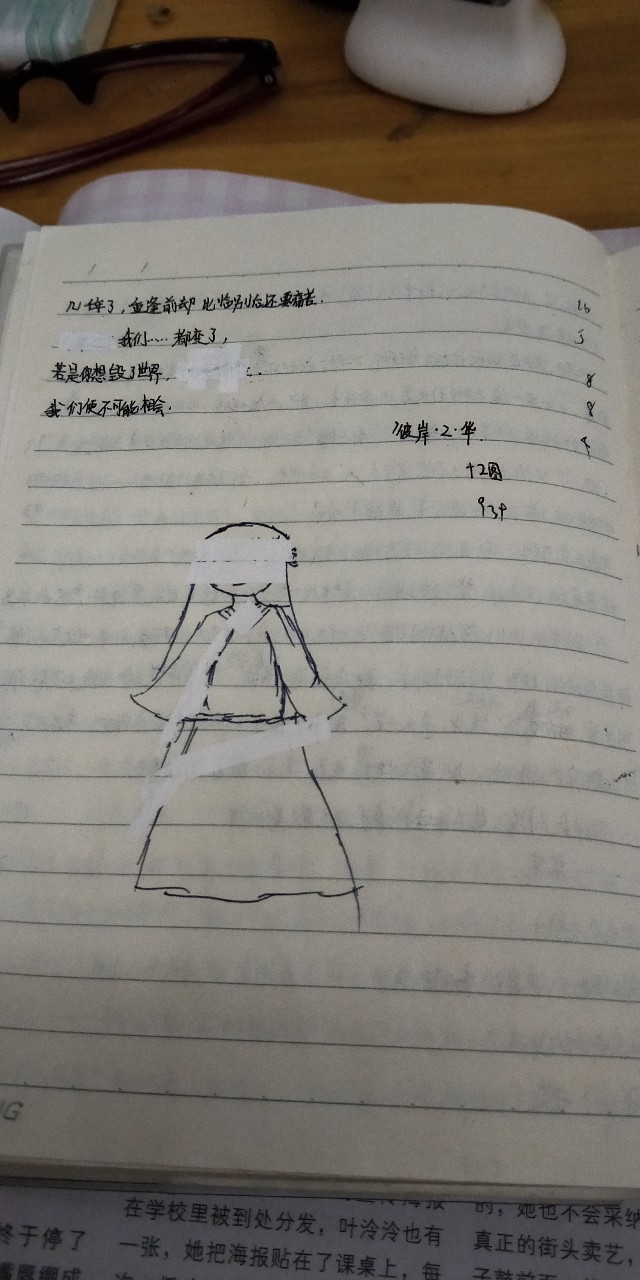 几年了，重逢前却比临别后还要痛苦.
我们……都变了，
若是你想毁了世界，
我们便不可能相会.
彼岸·2·华
+2圆
934
15
5
8
8
4
NG
在学校里被到处分发，叶泠泠也有
一张，她把海报贴在了课桌上，每
的，她也不会采纳
真正的街头卖艺，
终于停了